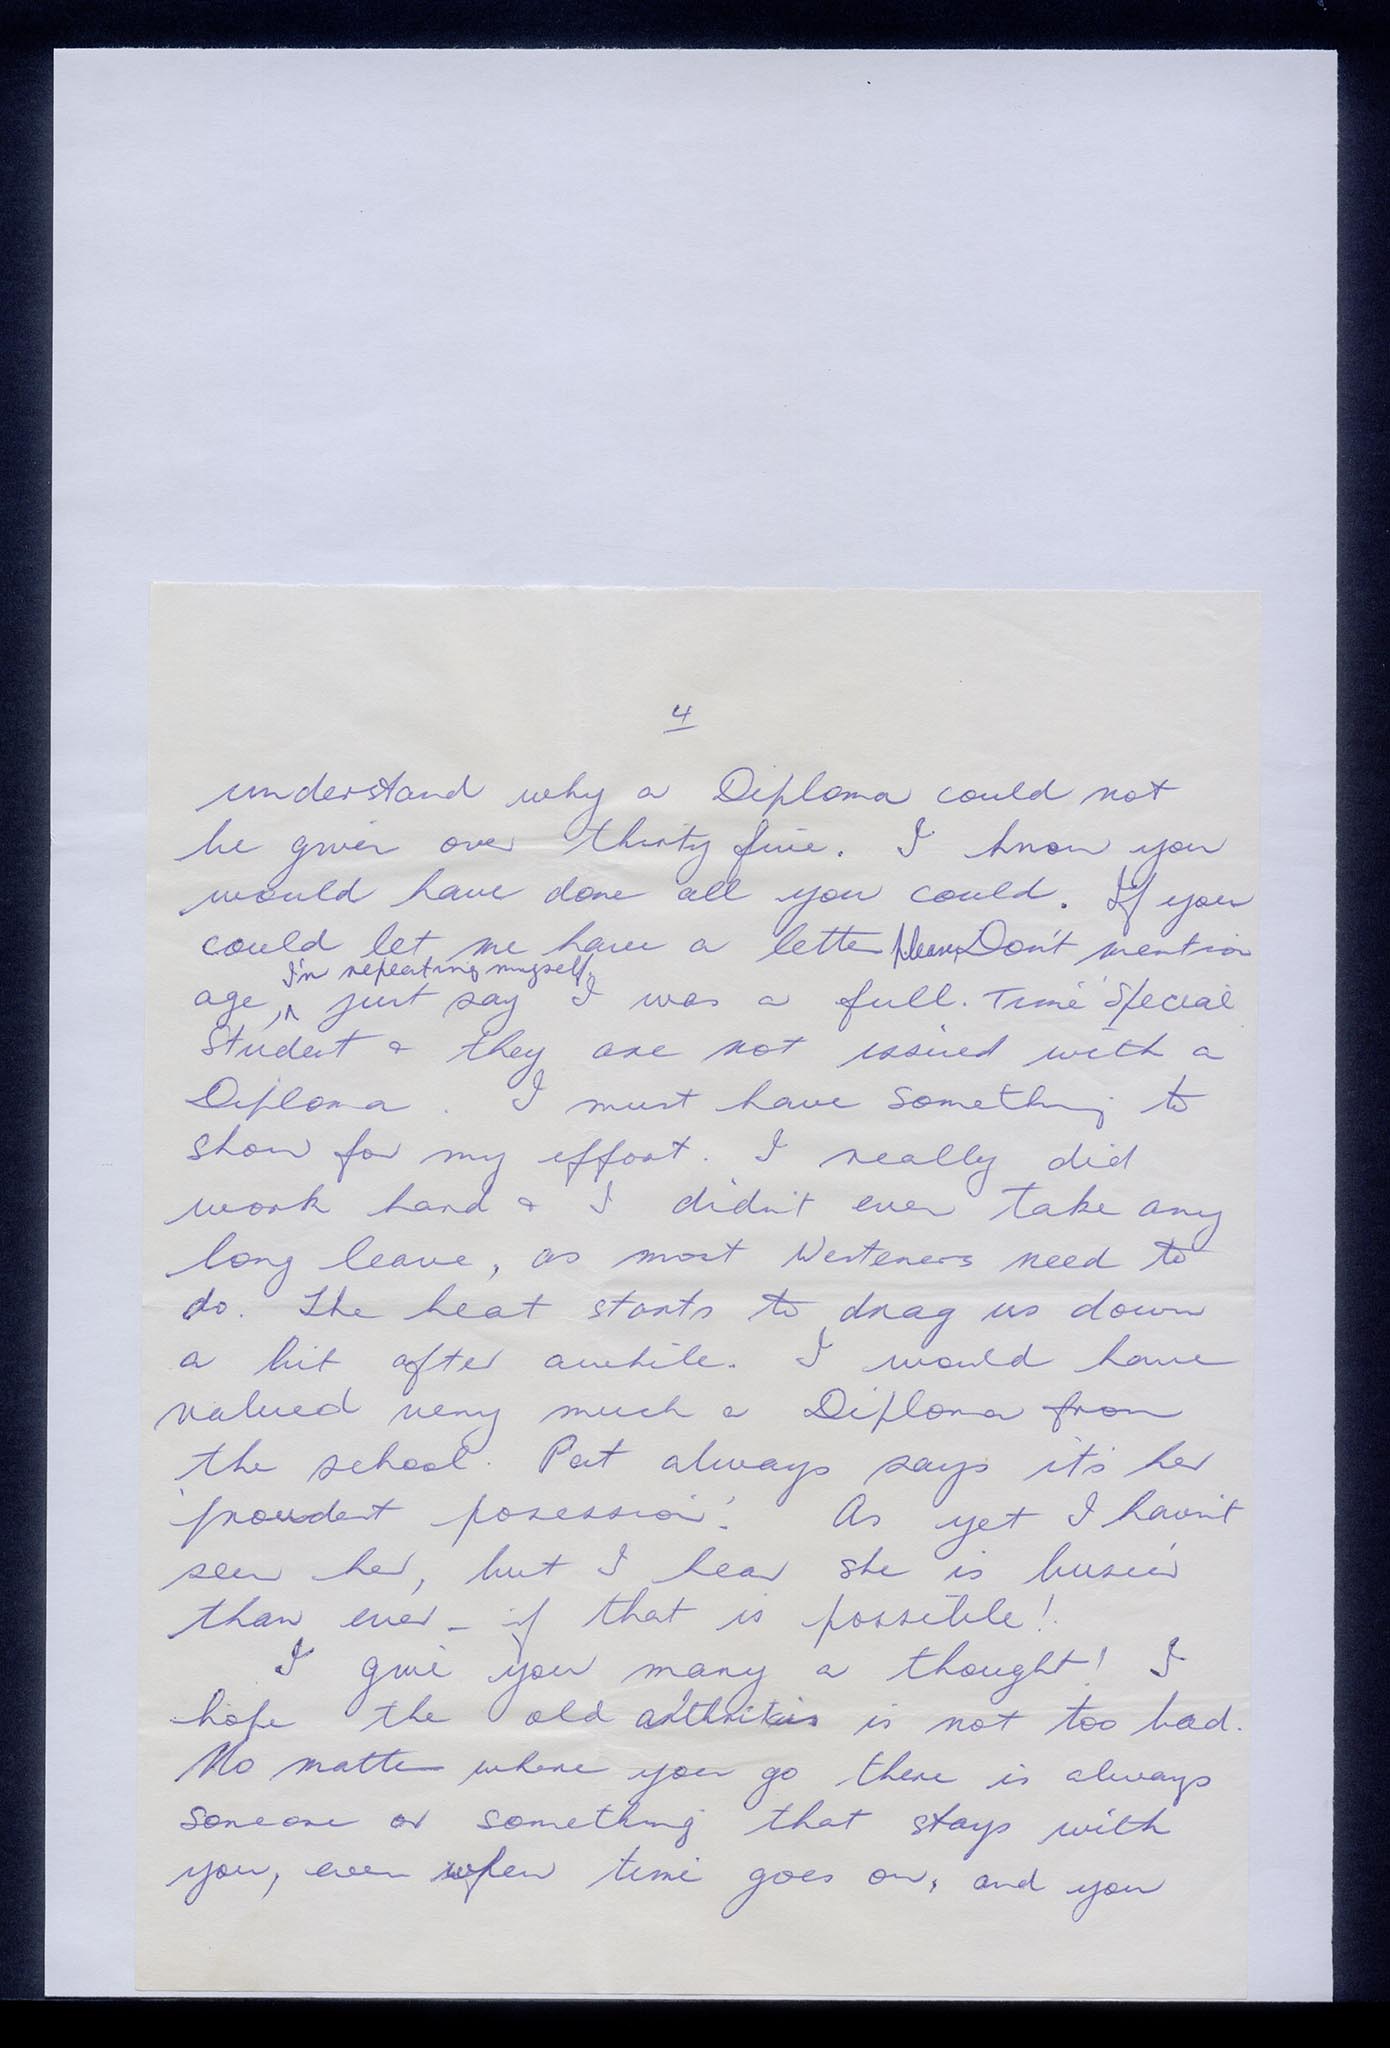 4
understand why a Diploma could not
be given over thirty five. I know you
would have done all you could. If you
could let me have a letter please, Don't mention
I'm repeating myself,
age, ^ just say I was a full. Time Special
Student & they are not issued with a
Diploma. I must have something to
show for my effort. I really did
work hard & I didn't even take any
long leave, as most Westeners need to
do. The heat starts to drag us down
a bit after awhile. I would have
valued very much a Diploma from
the school. Pat always says it's her
'proudest posession'. As yet I havn't
seen her, but I hear she is busier
than ever - if that is possible!
I give you many a thought! I
hope the old arthritis is not too bad.
No matter where you go there is always
someone or something that stays with
you, even when time goes on, and you